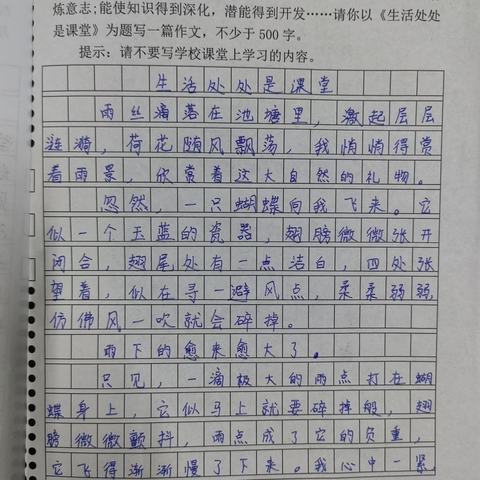 炼意志;能使知识得到深化,潜能得到开发……请你以《生活处处
是课堂》为题写一篇作文,不少于500字。
提示:请不要写学校课堂上学习的内容。
生活处处是课堂
雨丝滴落在池塘里,激起层层
涟漪,荷花随风飘荡,我悄悄得赏
看雨景,欣常着这大自然的礼物。
忽然,一只蝴蝶向我飞来。它
似一个玉蓝的瓷器,翅膀微微张开
闭合,翅尾处有一点洁白,四处张
望着,似在寻一避风点,柔柔弱弱,
仿佛风一吹就会碎掉。
雨下的愈来愈大了。
只见,一滴极大的雨点打在蝴
蝶身上,它似马上就要碎掉般,翅
膀微微颤抖,雨点成了它的负重,
它飞得渐渐慢了下来。我心中一紧,